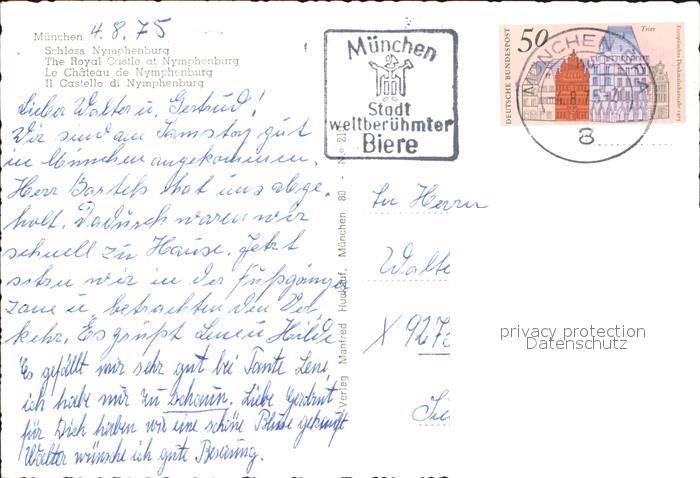 München 4.8.75
Schloss Nymphenburg
The Royal Castle at Nymphenburg
Le Château de Nymphenburg
Il Castello di Nymphenburg
Lieber Walter u. Gertrud!
Wir sind am Samstag gut
in München angekommen.
Herr Bartels hat uns abge-
holt. Dadurch waren wir
schnell zu Hause. Jetzt
sitzen wir in der Fußgänger
zone u. betrachten den Ver
kehr. Es grüßt Lene u. Hilde
Es gefällt mir sehr gut bei Tante Lene,
ich habe nur zu schaun. Liebe Gertrud,
für Dich haben wir eine schöne Bluse gekauft
Walter wünsche ich gute Besserung.
Verlag Manfred Huchauf, München 80 - No 21
München
Stadt
weltberühmter
Biere
DEUTSCHE BUNDESPOST
50
Trier
Europäisches Denkmalschutzjahr 1975
MÜNCHEN
8
Herrn
Walte
X 9273
privacy protection
Datenschutz